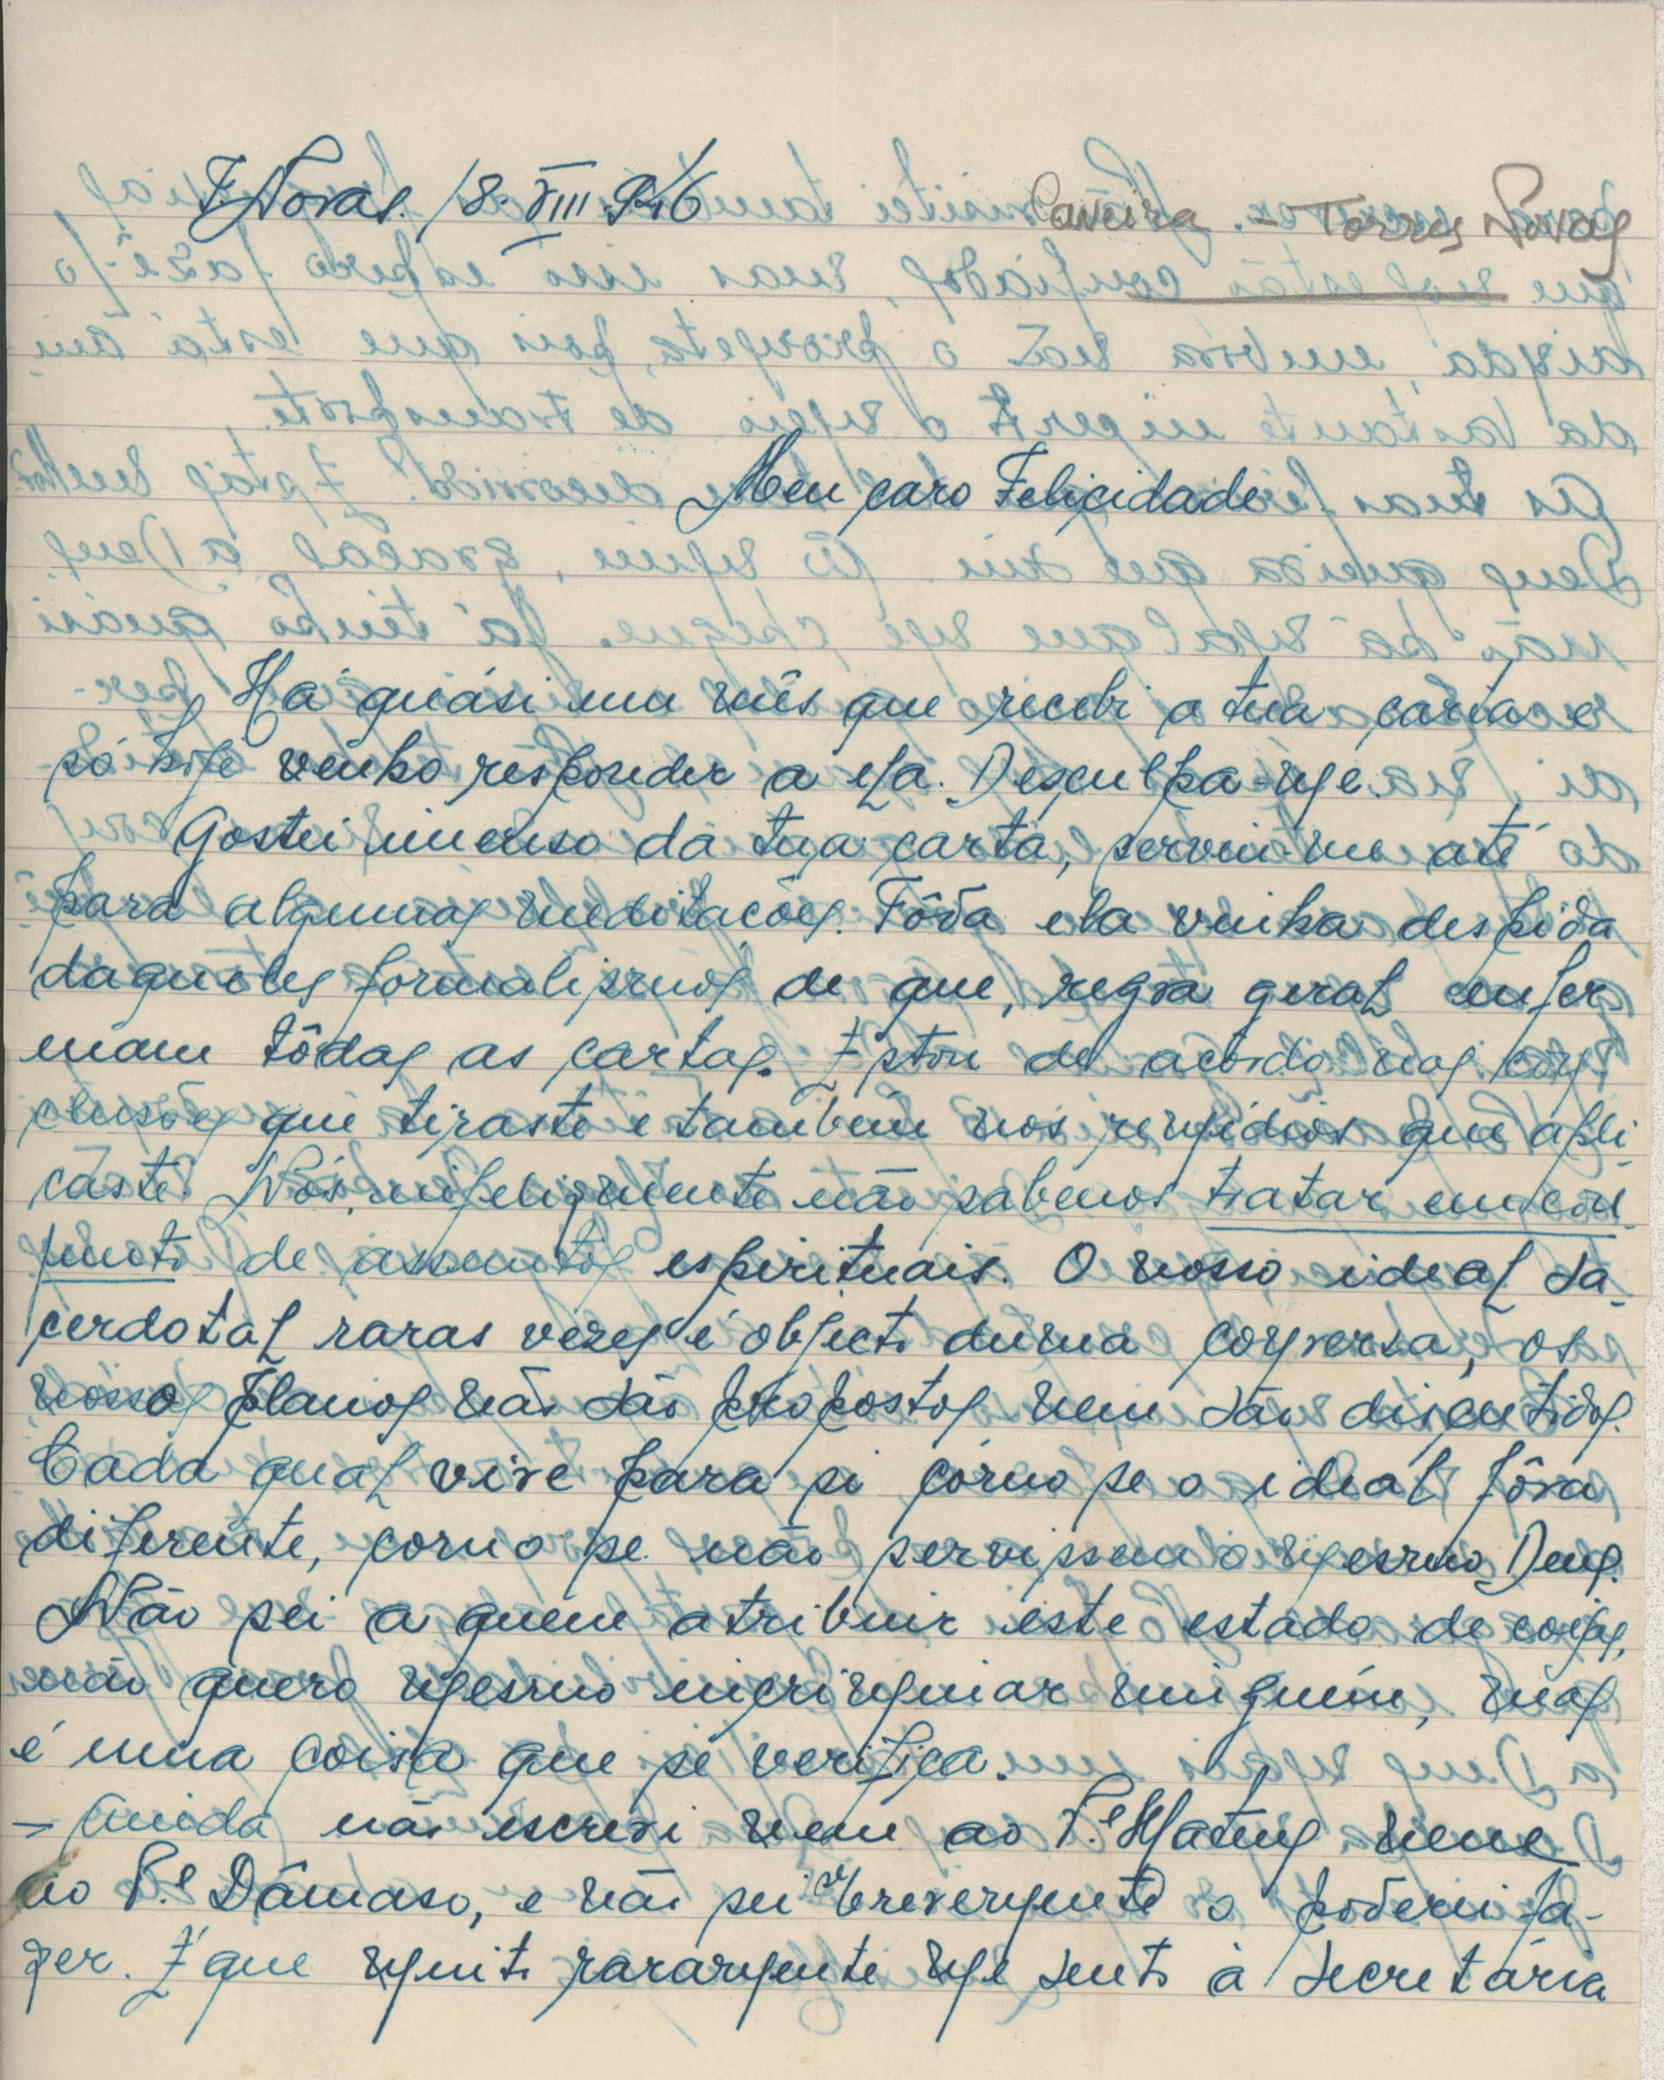 T. Novas. 18. VIII. 946
Caveira - Torres Novas
Meu caro Felicidade
Há quási um mês que recebi a tua carta e
só hoje venho responder a ela. Desculpa-me.
Gostei imenso da tua carta, serviu-me até
para algumas meditações. Tôda ela vinha despida
daqueles formalismos de que, regra geral enfer
mam tôdas as cartas. Estou de acôrdo nas con
clusões que tiraste e também nos remédios que apli
caste. Nós, infelizmente não sabemos tratar em con-
junto de assuntos espirituais. O nosso ideal sa-
cerdotal raras vezes é objecto duma conversa, os
nossos planos não são propostos nem são discutidos.
Cada qual vive para si como se o ideal fôra
diferente, como se não servissem o mesmo Deus.
Não sei a quem atribuir êste estado de coisas,
não quero mesmo incriminar ninguém, mas
é uma coisa que se verifica.
- Ainda não escrevi nem ao P.e Mateus nem
ao P.e Dâmaso, e não sei se brevemente o poderei fa-
zer. É que muito raramente me sento à secretária